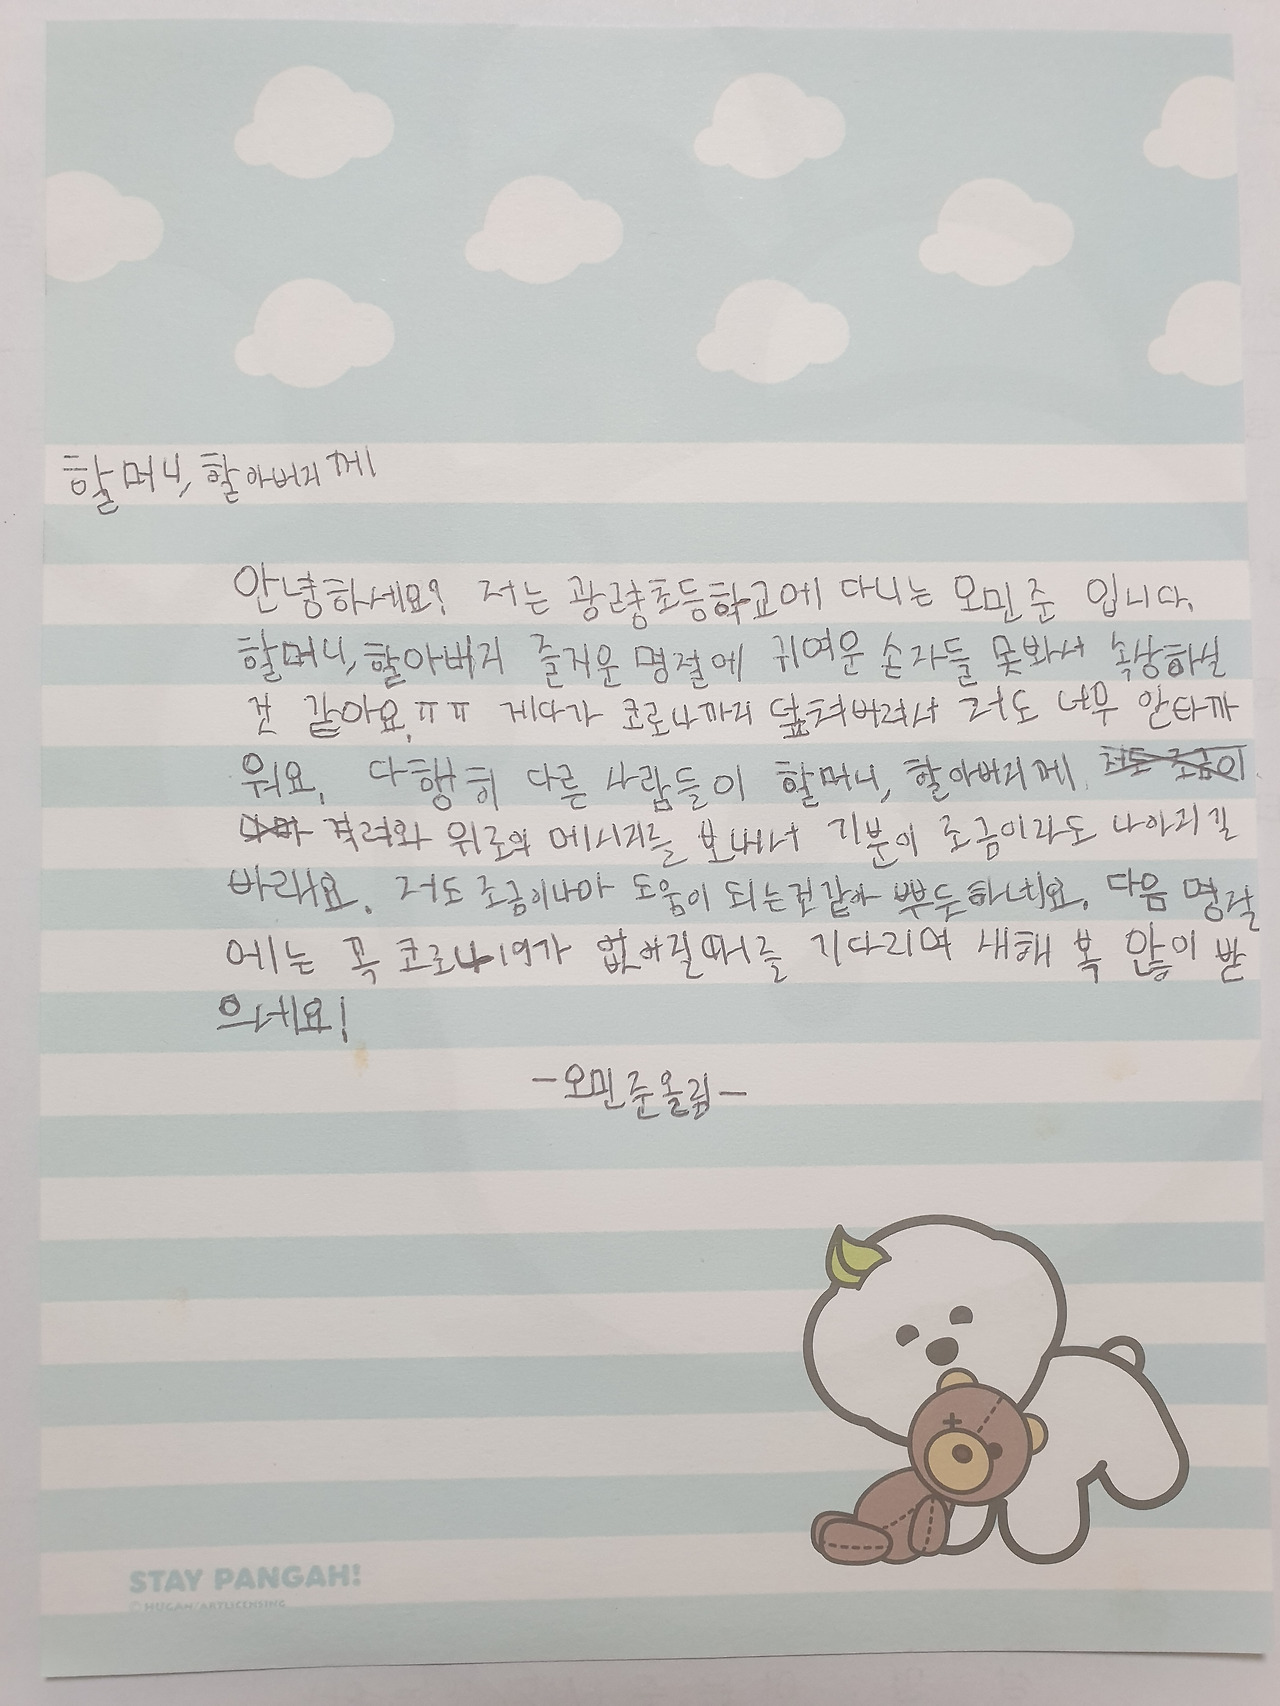 할머니, 할아버지께
안녕하세요? 저는 광릉초등학교에 다니는 오민준 입니다.
할머니, 할아버지 즐거운 명절에 귀여운 손자들 못봐서 속상하실
것 같아요. ㅠㅠ 게다가 코로나까지 덮쳐버려서 저도 너무 안타까
워요. 다행히 다른 사람들이 할머니, 할아버지께 저도 조금이
나마 격려와 위로의 메시지를 보내서 기분이 조금이라도 나아지길
바래요. 저도 조금이나마 도움이 되는것같아 뿌듯하네요. 다음 명절
에는 꼭 코로나19가 없어질때를 기다리며 새해 복 많이 받
으세요!
-오민준올림-
STAY PANGAH!
© HUGAH/ARTLICENSING